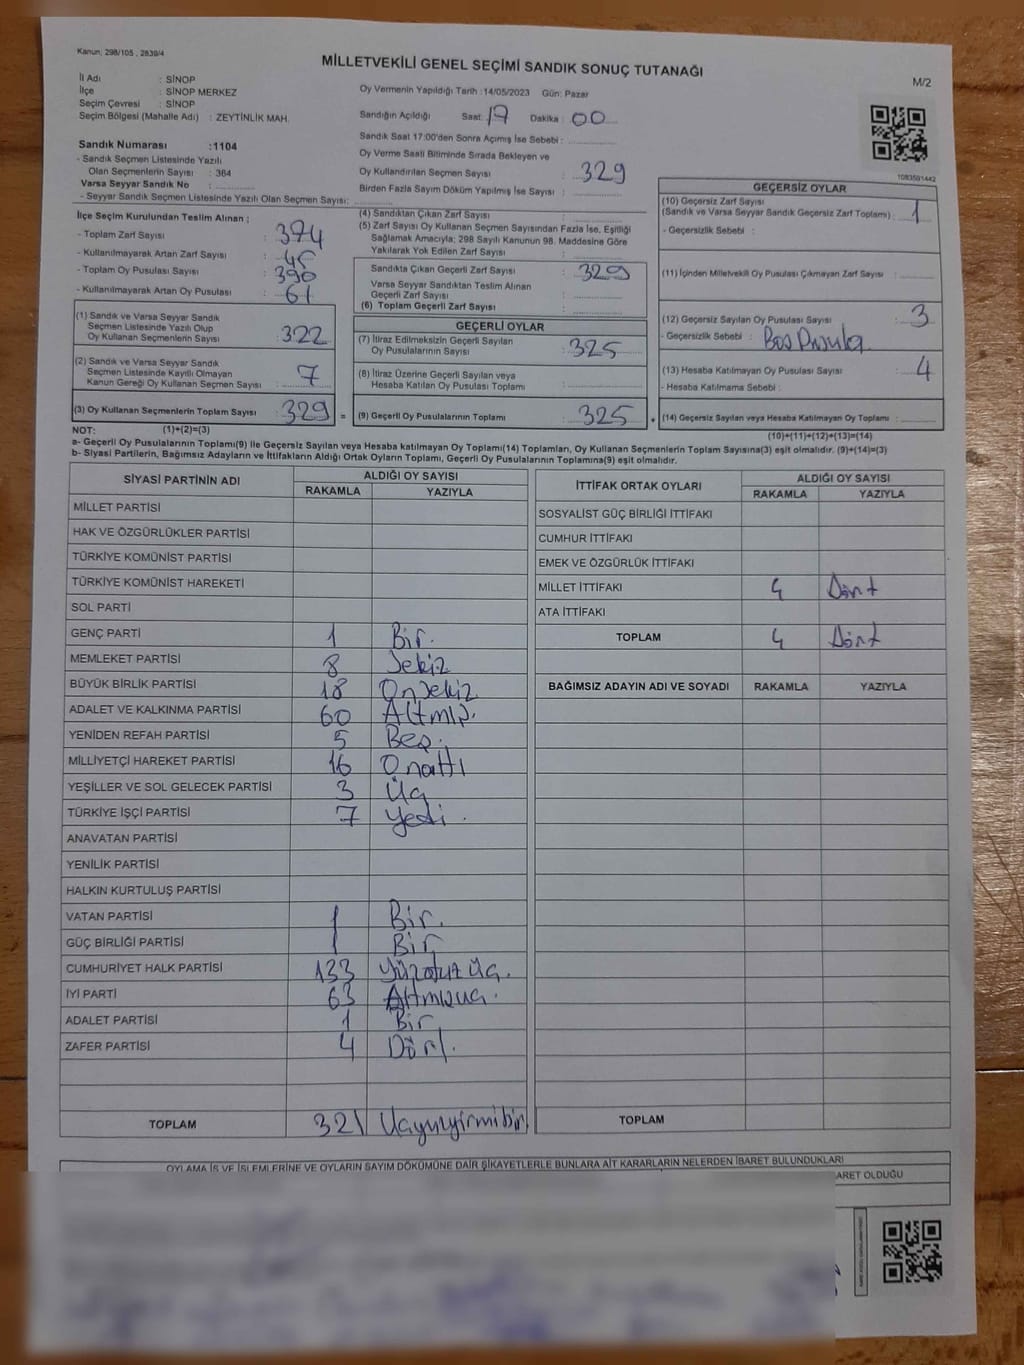 Kanun: 298/105 , 2839/4
MİLLETVEKİLİ GENEL SEÇİMİ SANDIK SONUÇ TUTANAĞI
M/2
İl Adı : SİNOP
İlçe : SİNOP MERKEZ
Seçim Çevresi : SİNOP
Seçim Bölgesi (Mahalle Adı) : ZEYTİNLİK MAH.
Sandık Numarası :1104
- Sandık Seçmen Listesinde Yazılı
Olan Seçmenlerin Sayısı : 364
Varsa Seyyar Sandık No :
- Seyyar Sandık Seçmen Listesinde Yazılı Olan Seçmen Sayısı:
İlçe Seçim Kurulundan Teslim Alınan ;
- Toplam Zarf Sayısı : 374
- Kullanılmayarak Artan Zarf Sayısı : 45
- Toplam Oy Pusulası Sayısı : 390
- Kullanılmayarak Artan Oy Pusulası : 61
(1) Sandık ve Varsa Seyyar Sandık
Seçmen Listesinde Yazılı Olup
Oy Kullanan Seçmenlerin Sayısı : 322
(2) Sandık ve Varsa Seyyar Sandık
Seçmen Listesinde Kayıtlı Olmayan
Kanun Gereği Oy Kullanan Seçmen Sayısı : 7
(3) Oy Kullanan Seçmenlerin Toplam Sayısı : 329 =
Oy Vermenin Yapıldığı Tarih :14/05/2023 Gün: Pazar
Sandığın Açıldığı Saat: 17 Dakika : 00
Sandık Saat 17:00'den Sonra Açımış İse Sebebi :
Oy Verme Saati Bitiminde Sırada Bekleyen ve
Oy Kullandırılan Seçmen Sayısı : 329
Birden Fazla Sayım Döküm Yapılmış İse Sayısı :
(4) Sandıktan Çıkan Zarf Sayısı :
(5) Zarf Sayısı Oy Kullanan Seçmen Sayısından Fazla İse, Eşitliği
Sağlamak Amacıyla; 298 Sayılı Kanunun 98. Maddesine Göre
Yakılarak Yok Edilen Zarf Sayısı :
Sandıkta Çıkan Geçerli Zarf Sayısı : 329
Varsa Seyyar Sandıktan Teslim Alınan
Geçerli Zarf Sayısı :
(6) Toplam Geçerli Zarf Sayısı :
GEÇERLİ OYLAR
(7) İtiraz Edilmeksizin Geçerli Sayılan
Oy Pusulalarının Sayısı : 325
(8) İtiraz Üzerine Geçerli Sayılan veya
Hesaba Katılan Oy Pusulası Toplamı :
(9) Geçerli Oy Pusulalarının Toplamı : 325 +
1083501442
GEÇERSİZ OYLAR
(10) Geçersiz Zarf Sayısı
(Sandık ve Varsa Seyyar Sandık Geçersiz Zarf Toplamı) : 1
- Geçersizlik Sebebi :
(11) İçinden Milletvekili Oy Pusulası Çıkmayan Zarf Sayısı :
(12) Geçersiz Sayılan Oy Pusulası Sayısı : 3
- Geçersizlik Sebebi : Boş Pusula
(13) Hesaba Katılmayan Oy Pusulası Sayısı : 4
- Hesaba Katılmama Sebebi :
(14) Geçersiz Sayılan veya Hesaba Katılmayan Oy Toplamı :
NOT: (1)+(2)=(3) (10)+(11)+(12)+(13)=(14)
a- Geçerli Oy Pusulalarının Toplamı(9) ile Geçersiz Sayılan veya Hesaba katılmayan Oy Toplamı(14) Toplamları, Oy Kullanan Seçmenlerin Toplam Sayısına(3) eşit olmalıdır. (9)+(14)=(3)
b- Siyasi Partilerin, Bağımsız Adayların ve İttifakların Aldığı Ortak Oyların Toplamı, Geçerli Oy Pusulalarının Toplamına(9) eşit olmalıdır.
SİYASİ PARTİNİN ADI ALDIĞI OY SAYISI
RAKAMLA YAZIYLA
MİLLET PARTİSİ
HAK VE ÖZGÜRLÜKLER PARTİSİ
TÜRKİYE KOMÜNİST PARTİSİ
TÜRKİYE KOMÜNİST HAREKETİ
SOL PARTİ
GENÇ PARTİ 1 Bir.
MEMLEKET PARTİSİ 8 Sekiz
BÜYÜK BİRLİK PARTİSİ 18 Onsekiz
ADALET VE KALKINMA PARTİSİ 60 Altmış.
YENİDEN REFAH PARTİSİ 5 Beş.
MİLLİYETÇİ HAREKET PARTİSİ 16 Onaltı
YEŞİLLER VE SOL GELECEK PARTİSİ 3 Üç
TÜRKİYE İŞÇİ PARTİSİ 7 Yedi.
ANAVATAN PARTİSİ
YENİLİK PARTİSİ
HALKIN KURTULUŞ PARTİSİ
VATAN PARTİSİ 1 Bir.
GÜÇ BİRLİĞİ PARTİSİ 1 Bir
CUMHURİYET HALK PARTİSİ 133 Yüzotuzüç.
İYİ PARTİ 63 Altmışüç.
ADALET PARTİSİ 1 Bir
ZAFER PARTİSİ 4 Dört.
TOPLAM 321 Üçyüzyirmibir
İTTİFAK ORTAK OYLARI ALDIĞI OY SAYISI
RAKAMLA YAZIYLA
SOSYALİST GÜÇ BİRLİĞİ İTTİFAKI
CUMHUR İTTİFAKI
EMEK VE ÖZGÜRLÜK İTTİFAKI
MİLLET İTTİFAKI 4 Dört
ATA İTTİFAKI
TOPLAM 4 Dört
BAĞIMSIZ ADAYIN ADI VE SOYADI RAKAMLA YAZIYLA
TOPLAM
OYLAMA İŞ VE İŞLEMLERİNE VE OYLARIN SAYIM DÖKÜMÜNE DAİR ŞİKAYETLERLE BUNLARA AİT KARARLARIN NELERDEN İBARET BULUNDUKLARI
ARET OLDUĞU